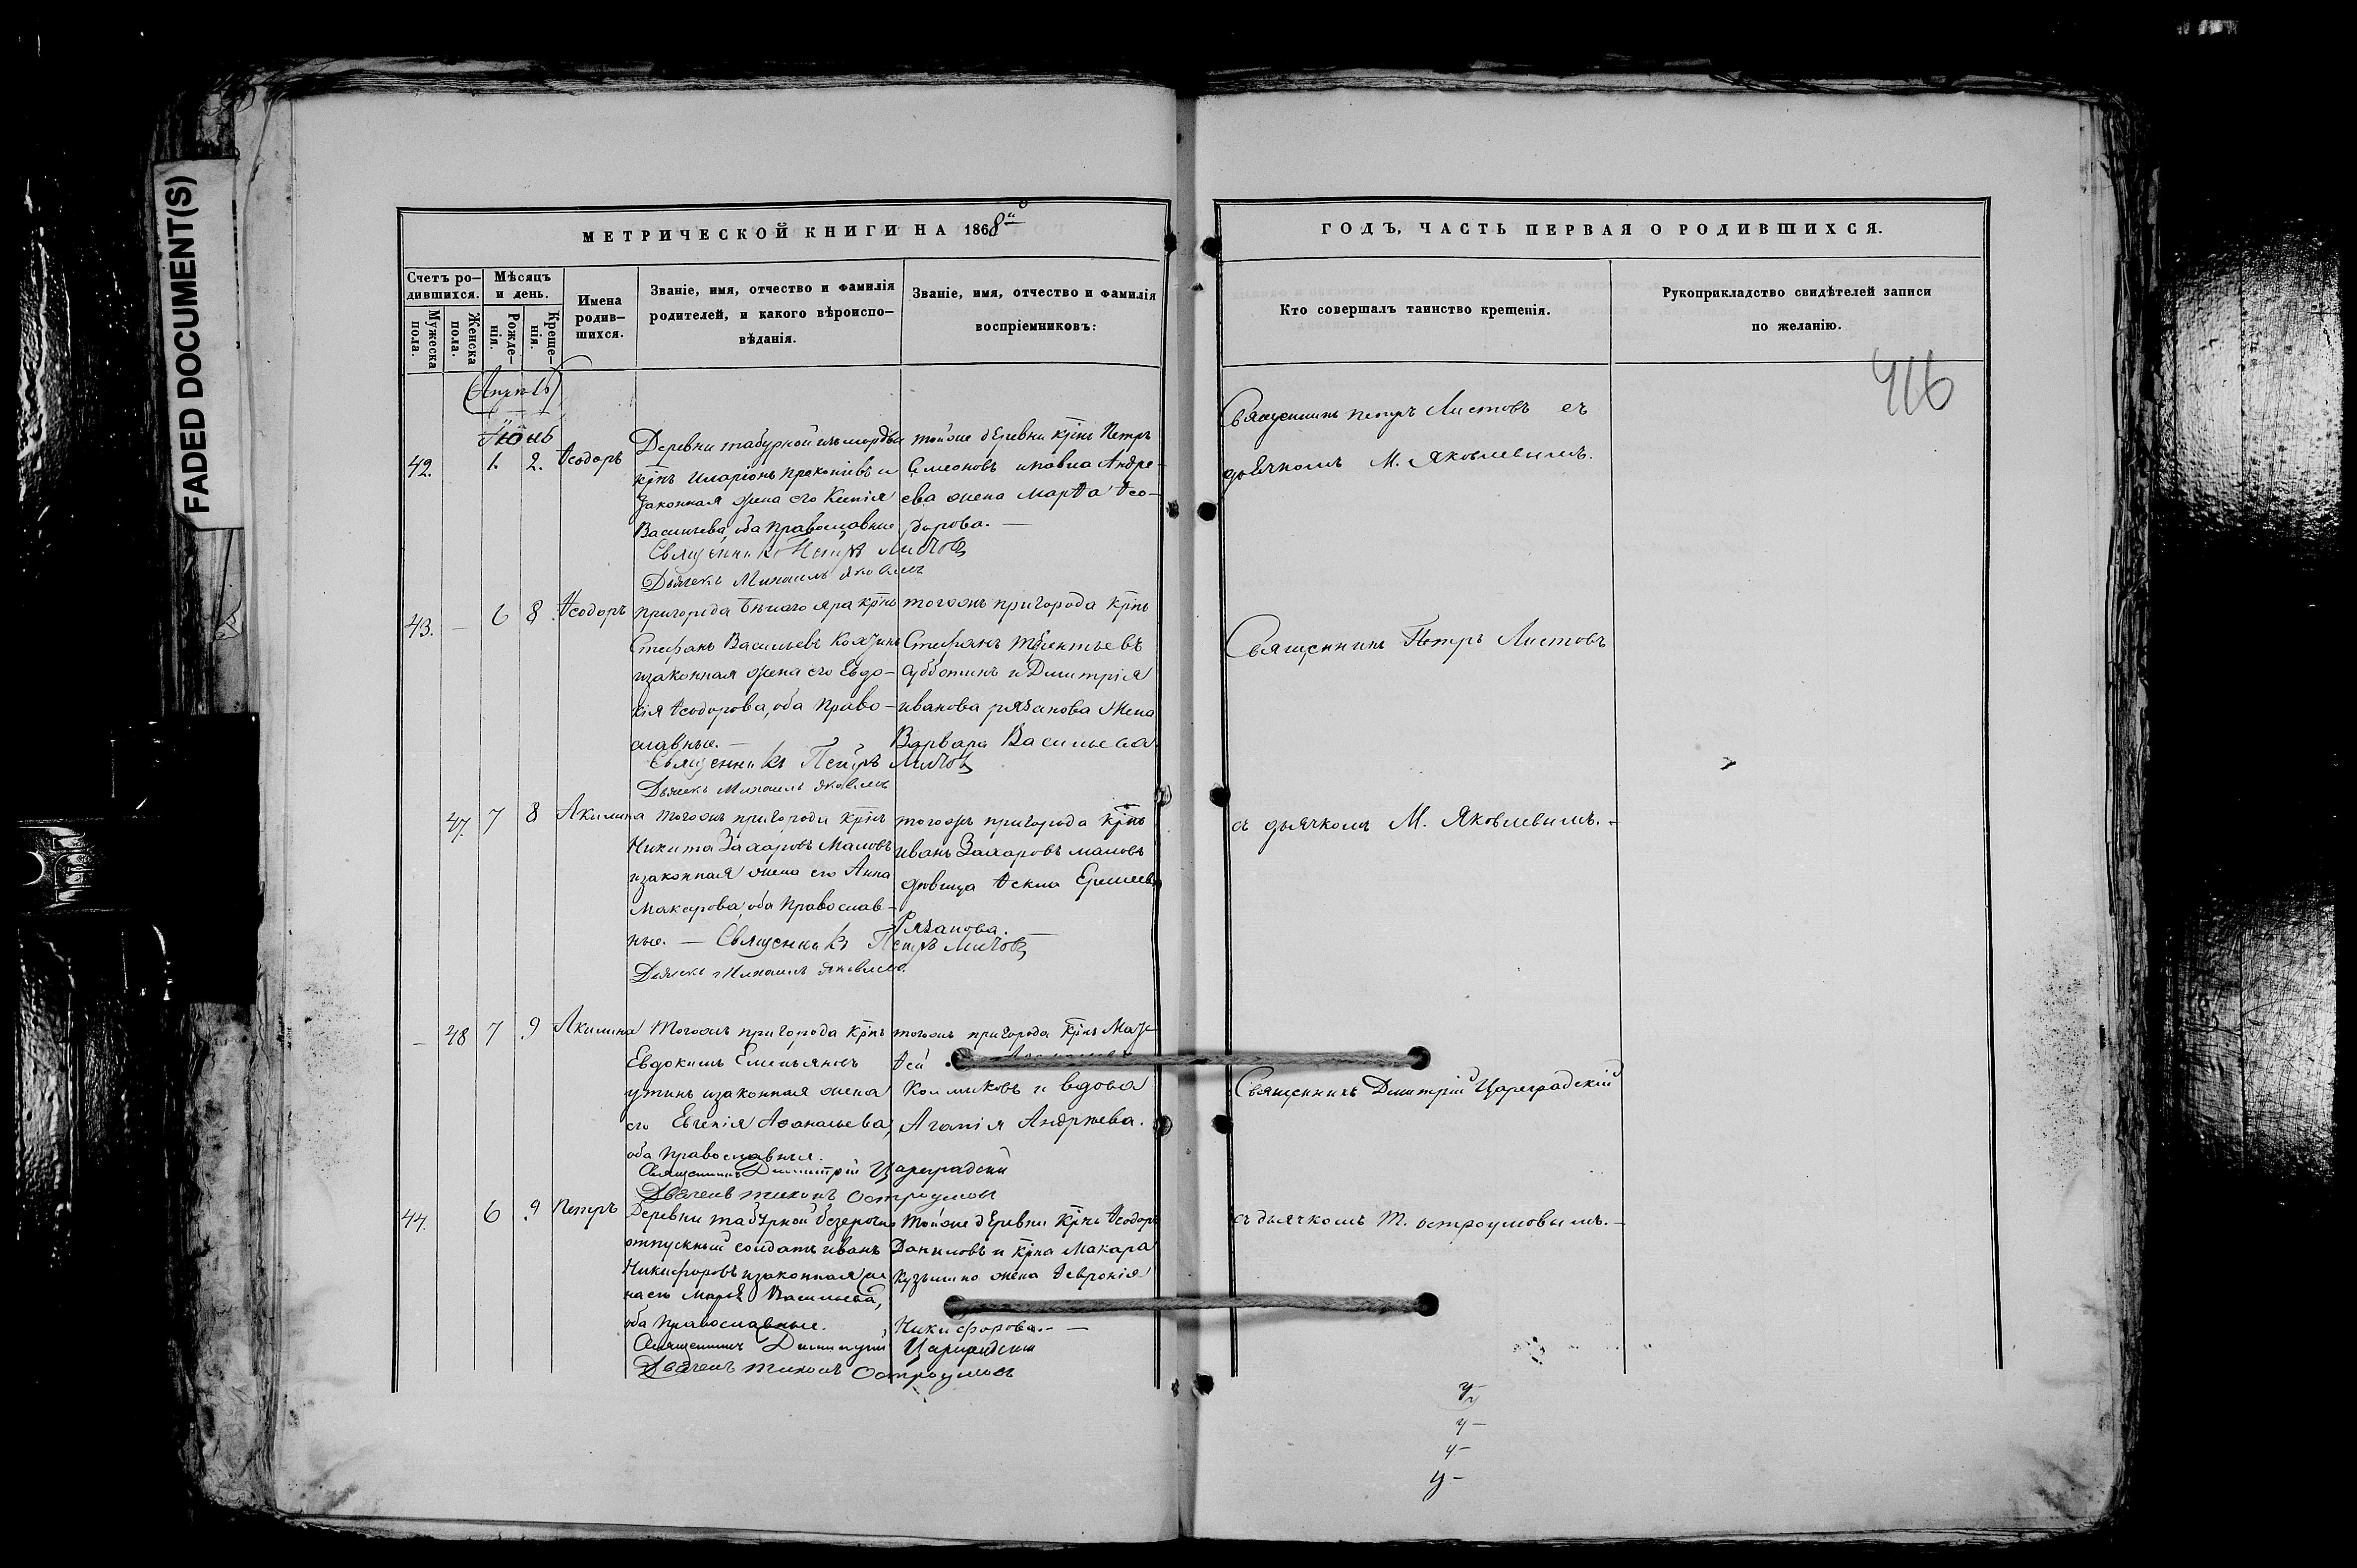 FADED DOCUMENT(S)
МЕТРИЧЕСКОЙ КНИГИ НА 1868й
Счетъ родившихся.
Мужеска пола.
Женска пола.
Мѣсяцъ и день.
Рожденія.
Крещенія.
Имена родившихся.
Званіе, имя, отчество и фамилія
родителей, и какого вѣроиспо-
вѣданія.
Званіе, имя, отчество и фамилія
воспріемниковъ:
Іюнь
42. 1. 2. Ѳеодоръ
Деревни табурной изъ мордвы
крнъ Иларіонъ Прокопіевъ и
законная жена его
Васильева, оба православные
Священникъ Петръ Листовъ
Дьячекъ Михаилъ Яковлевъ
тойже деревни крнъ Петръ
Симеоновъ и Павла Андре-
ева жена Марѳа Ѳео-
дорова. —
43. — 6 8. Ѳеодоръ
пригорода Бѣлаго яра крнъ
Стефанъ Васильевъ
и законная жена его Евдо-
кія Ѳеодорова, оба право-
славные. —
Священникъ Петръ Листовъ
Дьячекъ Михаилъ Яковлевъ
тогожъ пригорода крнъ
Стефанъ Терентьевъ
Субботинъ и Димитрія
Иванова Рязанова жена
Варвара Васильева.
47. 7 8 Акилина
тогожъ пригорода крнъ
Никита Захаровъ Маловъ
и законная жена его Анна
Макарова, оба православ-
ные. — Священникъ Петръ Листовъ
Дьячекъ Михаилъ Яковлевъ
тогожъ пригорода крнъ
Иванъ Захаровъ Маловъ
дѣвица Ѳекла
Рязанова.
— 48 7 9 Акилина
тогожъ пригорода крнъ
Евдокимъ Емельяновъ
Утинъ и законная жена
его Евгенія Аѳанасьева,
оба православные.
Священникъ Димитрій Цареградскій
Дьячекъ Тихонъ Остроумовъ
тогожъ пригорода крнъ Мат-
ѳей
Колмыковъ и вдова
Агапія Андреева.
44. 6 9 Петръ
Деревни табурной безсрочно
отпускный солдатъ Иванъ
Никифоровъ и законная же
на его Марья Васильева,
оба православные.
Священникъ Димитрій Цареградскій
Дьячекъ Тихонъ Остроумовъ
тойже деревни крнъ Ѳеодоръ
Даниловъ и крна Макара
Кузьмина жена Ѳевронія
Никифорова. —
ГОДЪ, ЧАСТЬ ПЕРВАЯ О РОДИВШИХСЯ.
Кто совершалъ таинство крещенія.
Рукоприкладство свидѣтелей записи
по желанію.
416
Священникъ Петръ Листовъ съ
дьячкомъ М. Яковлевымъ.
Священникъ Петръ Листовъ
съ дьячкомъ М. Яковлевымъ. —
Священникъ Дмитрій Цареградскій
съ дьячкомъ Т. Остроумовымъ. —